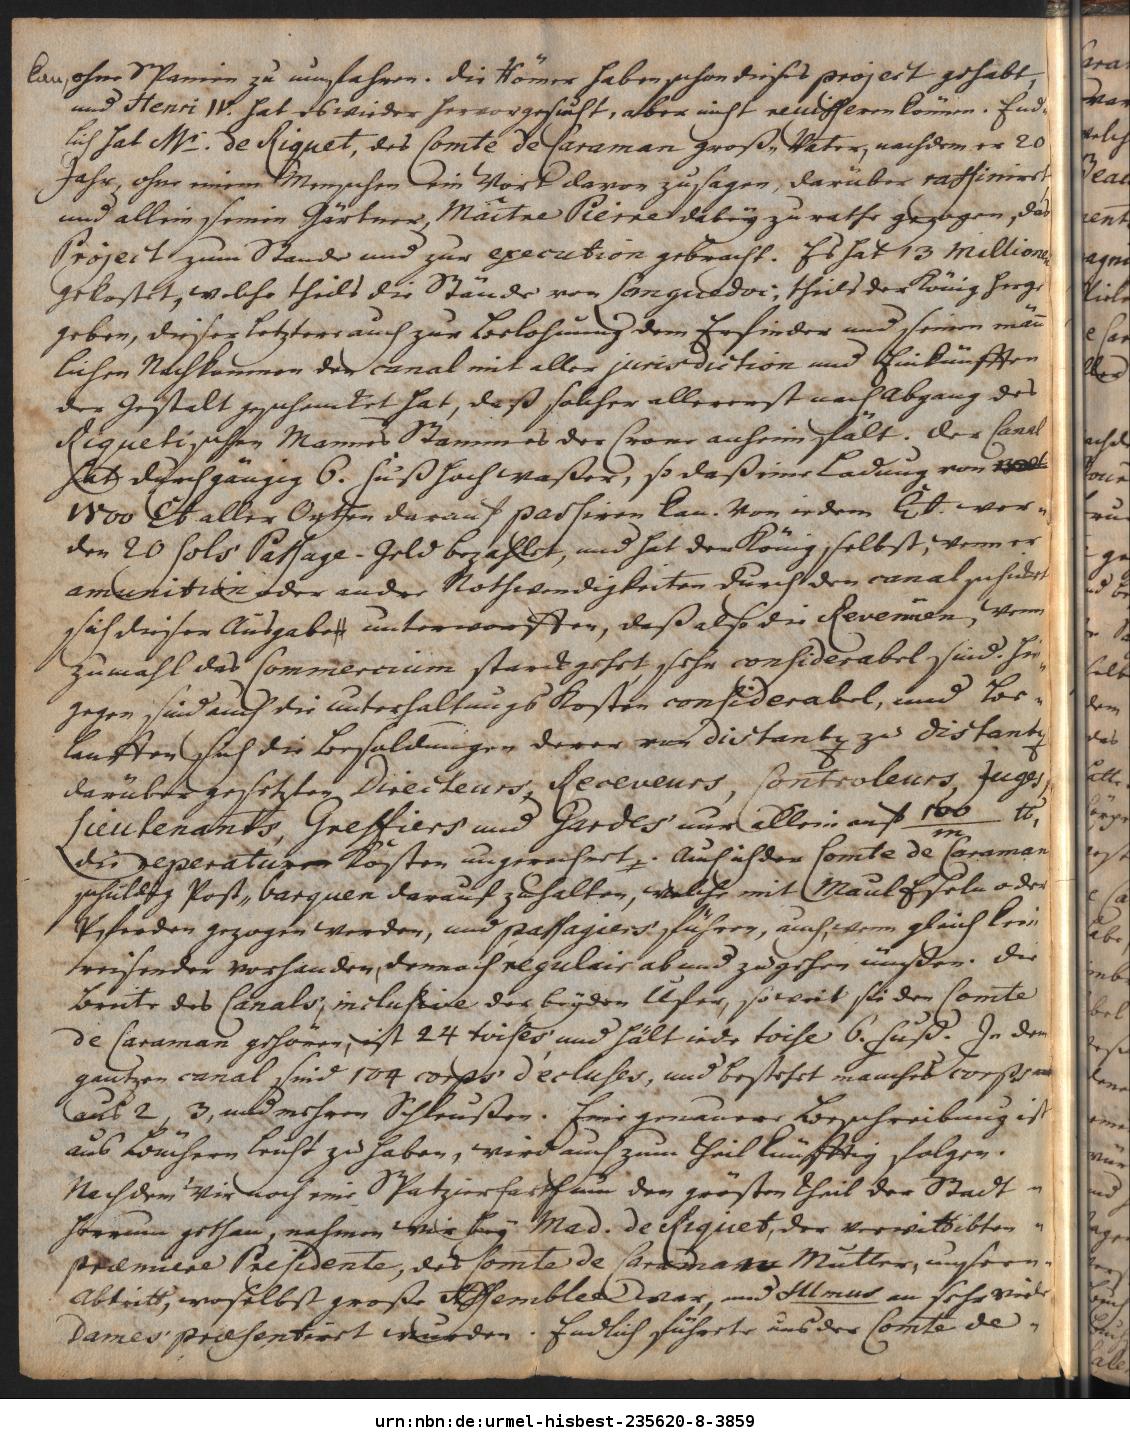 kan, ohne Spanien zu umfahren. Die Römer haben schon dieses project gehabt,
und Henri IV. hat es wieder hervorgesucht, aber nicht reussieren können. End-
lich hat Mr. de Riquet, des Comte de Caraman groß Vater, nachdem er 20
Jahr, ohne einem Menschen ein Wort davon zu sagen, darüber raffiniret
und allein seinen Gärtner, Maitre Pierre dabey zu rathe gezogen, das
Project zum Stande und zur execution gebracht. Es hat 13 Millionen
gekostet, welche theils die Stände von Languedoc, theils der König herge
geben, dieser letztere auch zur Belohnung dem Erfinder und seinen män
lichen Nachkommen den canal mit aller jurisdiction und Einkünfften
der Gestalt geschencket hat, daß solcher allererst nach Abgang des
Riquetischen Mannes Stammes der Crone anheim fält. Der Canal
hat durchgängig 6. Fuß hoch waßer, so daß eine Ladung von
1800 Ct. aller Orthen darauf passiren kan. Von iedem Ct. wer-
den 20 sols Passage-Geld bezahlet, und hat der König selbst, wenn er
amunition oder andere Nothwendigkeiten durch den canal schicket
sich dieser Ausgabe unterworffen, daß also die Revenüen, wenn
zumahl das Commercium starck gehet, sehr considerabel sind. Hin-
gegen sind auch die unterhaltungs Kosten considerabel, und be-
lauffen sich die Besoldungen derer von distantz zu distantz
darüber gesetzten Directeurs, Receveurs, Controleurs, Juges,
Lieutenants, Greffiers und Gardes nur allein auf 100/m lt,
die reperaturen Kosten ungerechnet. Auch ist der Comte de Caraman
schuldig Post-barquen darauf zu halten, welche mit Maul Eseln oder
Pferden gezogen werden, und passagiers führen, auch, wenn gleich kein
reisender vorhanden, dennoch regulair ab und zugehen müßen. Die
Breite des Canals, inclusive der beyden Ufer, so weit sie den Comte
de Caraman gehören, ist 24 toises, und hält iede toise 6. Fuß. In dem
gantzen canal sind 104 corps d'ecluses, und bestehet manches corps
aus 2, 3, und mehren Schleußen. Eine genauere Beschreibung ist
aus Büchern leicht zu haben, wird auch zum theil künfftig folgen.
Nachdem wir noch eine Spatzierfarth um den grösten theil der Stadt
herrum gethan, nahmen wir bey Mad. de Riquet, der verwittibten
premiere Presidente, des Comte de Caraman Mutter, unsern
Abtritt, woselbst große Assemblee war, und Illmus an sehr viele
Dames præsentiret wurden. Endlich führete uns der Comte de